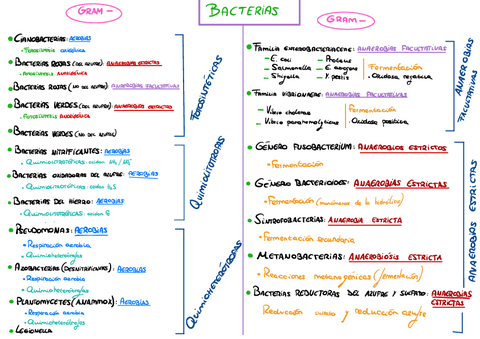 BACTERIAS
GRAM -
CIANOBACTERIAS: AEROBIAS
• FOTOSÍNTESIS OXIGÉNICA
BACTERIAS ROJAS (DEL AZUFRE): ANAEROBIAS ESTRICTAS
• FOTOSÍNTESIS ANOXIGÉNICA
BACTERIAS ROJAS (NO DEL AZUFRE): ANAEROBIAS FACULTATIVAS
BACTERIAS VERDES (DEL AZUFRE): ANAEROBIAS ESTRICTAS
• FOTOSÍNTESIS ANOXIGÉNICA
BACTERIAS VERDES (NO DEL AZUFRE)
FOTOSINTÉTICAS
BACTERIAS NITRIFICANTES: AEROBIAS
• Quimiolitotróficas:
BACTERIAS OXIDADORAS DEL AZUFRE: AEROBIAS
• Quimiolitotróficas:
BACTERIAS DEL HIERRO: AEROBIAS
• Quimiolitotróficas:
QUIMIOLITOTROFAS
PSEUDOMONAS: AEROBIAS
• Respiración aerobia
• Quimioheterótrofas
AZOBACTERIAS (DESNITRIFICANTES): AEROBIAS
• Respiración aerobia
• Quimioheterótrofas
PLANTOMYCETES (ANAMMOX): AEROBIAS
• Respiración aerobia
• Quimioheterótrofas
LEGIONELLA
QUIMIOHETERÓTROFAS
GRAM -
FAMILIA ENTEROBACTERIACEAE: ANAEROBIAS FACULTATIVAS
- E. coli - Proteus
- Salmonella - E. aerogens
- Shigella - Y. pestis
Fermentación
• Oxidasa negativa
FAMILIA VIBRIONACEAE: ANAEROBIAS FACULTATIVAS
- Vibrio cholerae
- Vibrio parahemolyticus
Fermentación
• Oxidasa positiva
ANAEROBIAS FACULTATIVAS
GÉNERO FUSOBACTERIUM: ANAEROBIOS ESTRICTOS
• Fermentación
GÉNERO BACTEROIDES: ANAEROBIAS ESTRICTAS
• Fermentación
SINTROFOBACTERIAS: ANAEROBIA ESTRICTA
• Fermentación secundaria
METANOBACTERIAS: ANAEROBIOSIS ESTRICTA
• Reacciones metanogénicas (fermentación)
BACTERIAS REDUCTORAS DEL AZUFRE Y SULFATO: ANAEROBIAS
ESTRICTAS
Reducción sulfato y reducción azufre
ANAEROBIAS ESTRICTAS